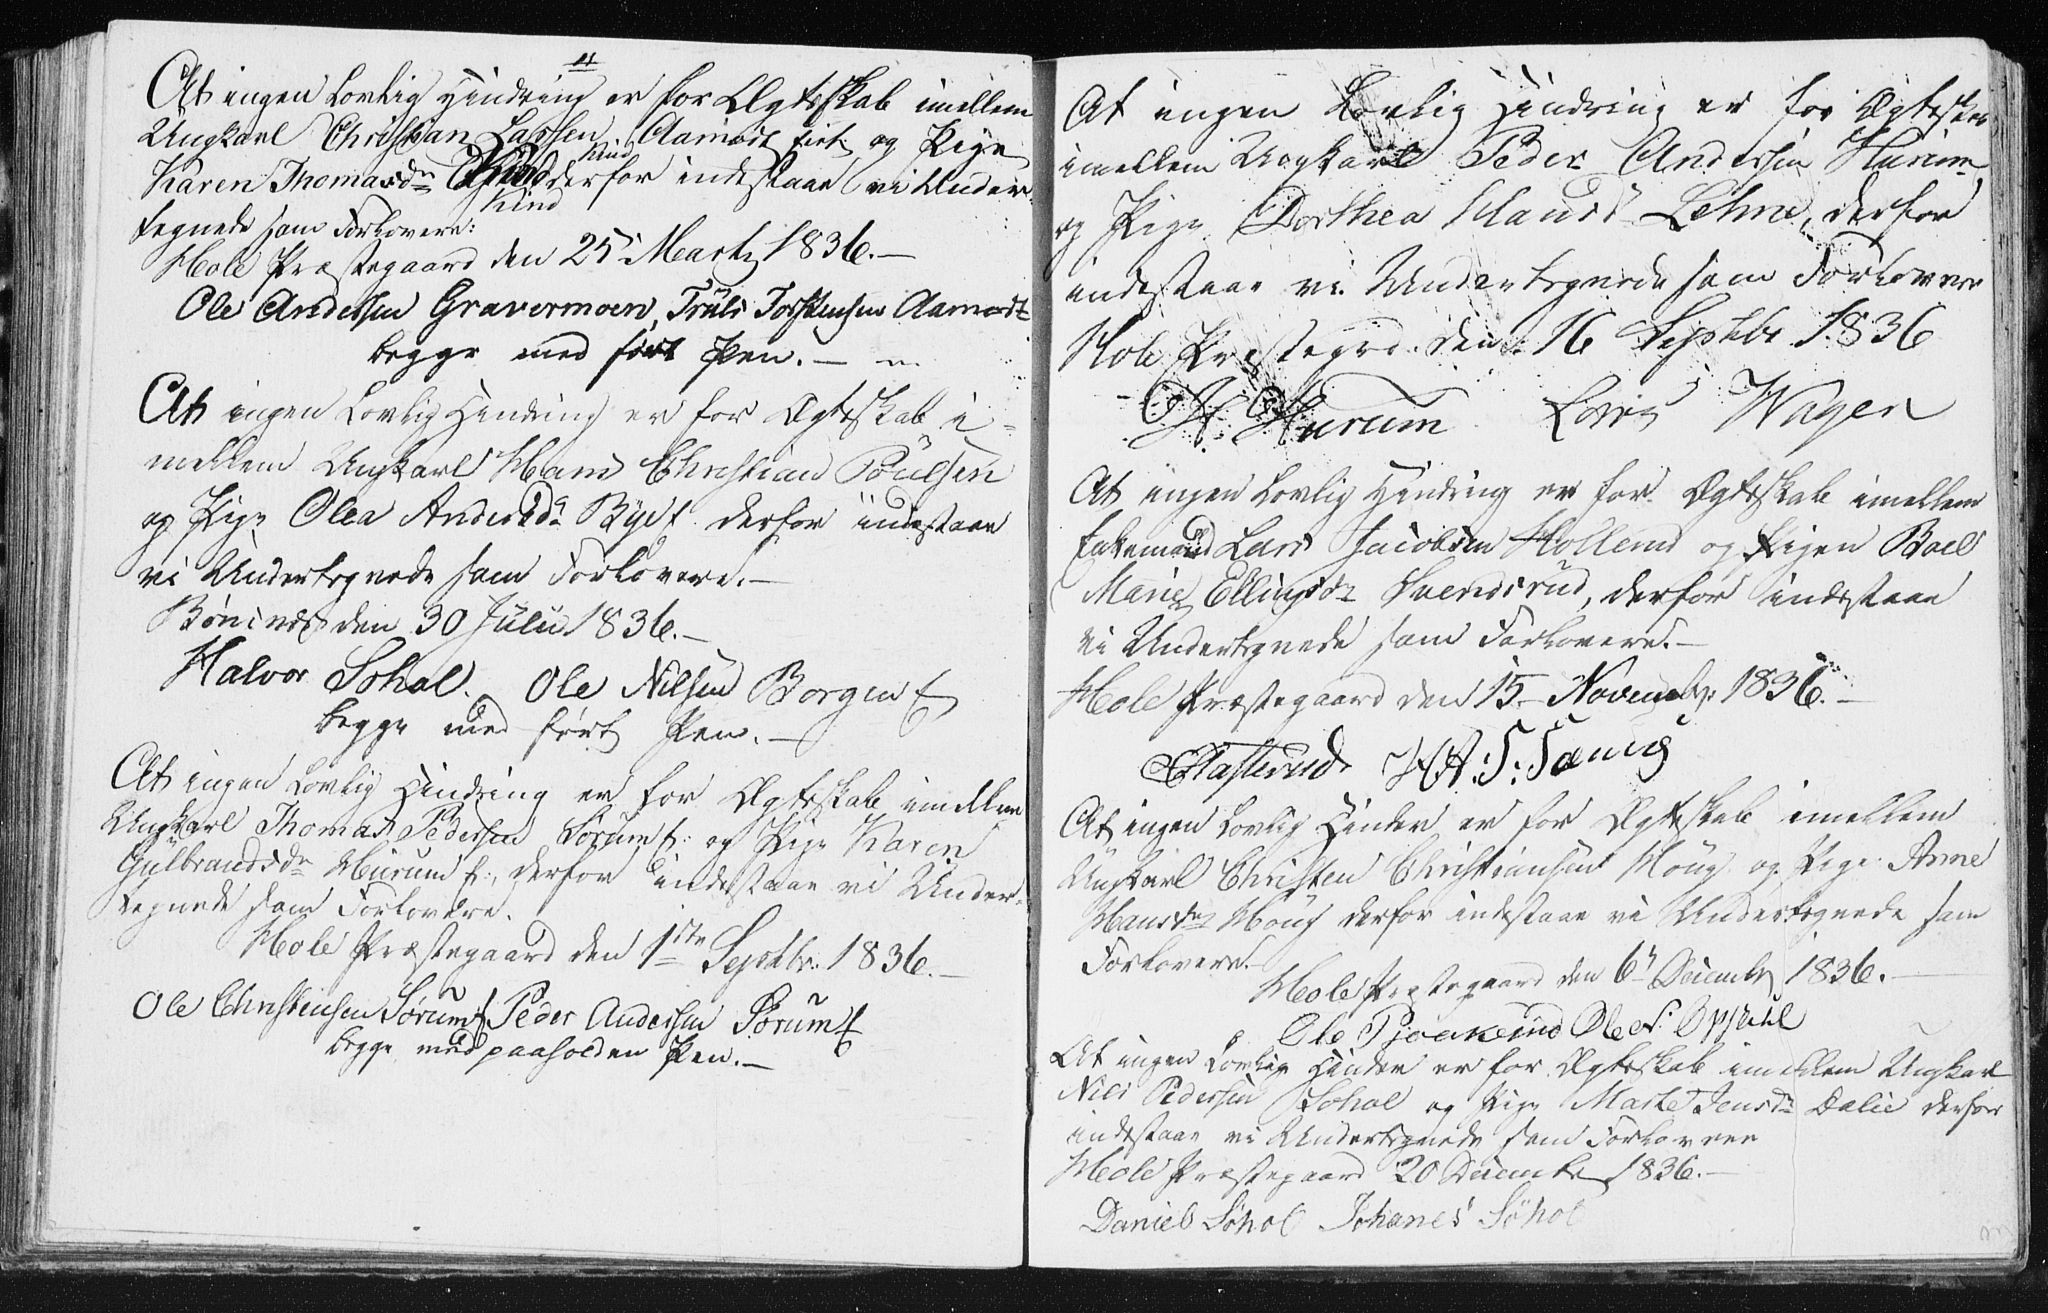 At ingen Lovlig Hindring er for Ægteskab imellem
Ungkarl Christian Larsen Aamodt og Pige
Karen Thomasdr Rud derfor indestaae vi Under-
tegnede som Forlovere:
Hole Præstegaard den 25 Marts 1836.
Ole Andersen Gravermoen, Truls Torstensen Aamodt
begge med ført Pen.
At ingen Lovlig Hindring er for Ægteskab i-
mellem Ungkarl Hans Christian Poulsen
og Pige Olea Andersdr Bye derfor indestaae
vi Undertegnede som Forlovere.
Bønsnes den 30 Juli 1836.
Halvor Sohol. Ole Nilsen Borgen
begge med ført Pen.
At ingen Lovlig Hindring er for Ægteskab imellem
Ungkarl Thomas Pedersen Sørum og Pige Karen
Gulbrandsdr Hurum derfor indestaae vi Under-
tegnede som Forlovere.
Hole Præstegaard den 1ste Septbr: 1836.
Ole Christensen Sørum Peder Andersen Sørum
begge med paaholden Pen.
At ingen Lovlig Hindring er for Ægteskab
imellem Ungkarl Peder Andersen Hurum
og Pige Dorthea Klausd Lehne, derfor
indestaae vi Undertegnede som Forlovere
Hole Præstegrd. den 16 Septbr 1836
A. Hurum Wagen
At ingen Lovlig Hindring er for Ægteskab imellem
Enkemand Lars Jacobsen og Pigen Boel
Marie Ellingsdr Svendsrud, derfor indestaae
vi Undertegnede som Forlovere.
Hole Præstegaard den 15 Novembr: 1836.
At ingen Lovlig Hinder er for Ægteskab imellem
Ungkarl Christen Christiansen Moug og Pige Anne
Hansdr Moug derfor indestaae vi Undertegnede som
Forlovere.
Hole Præstegaard den 6 December 1836.
Ole
At ingen Lovlig Hinder er for Ægteskab imellem Ungkarl
Niels Pedersen Sohol og Pige Marte Jensdr Dalie derfor
indestaae vi Undertegnede som Forlovere
Hole Præstegaard 20 December 1836.
Daniel Søhol Johanes Søhol